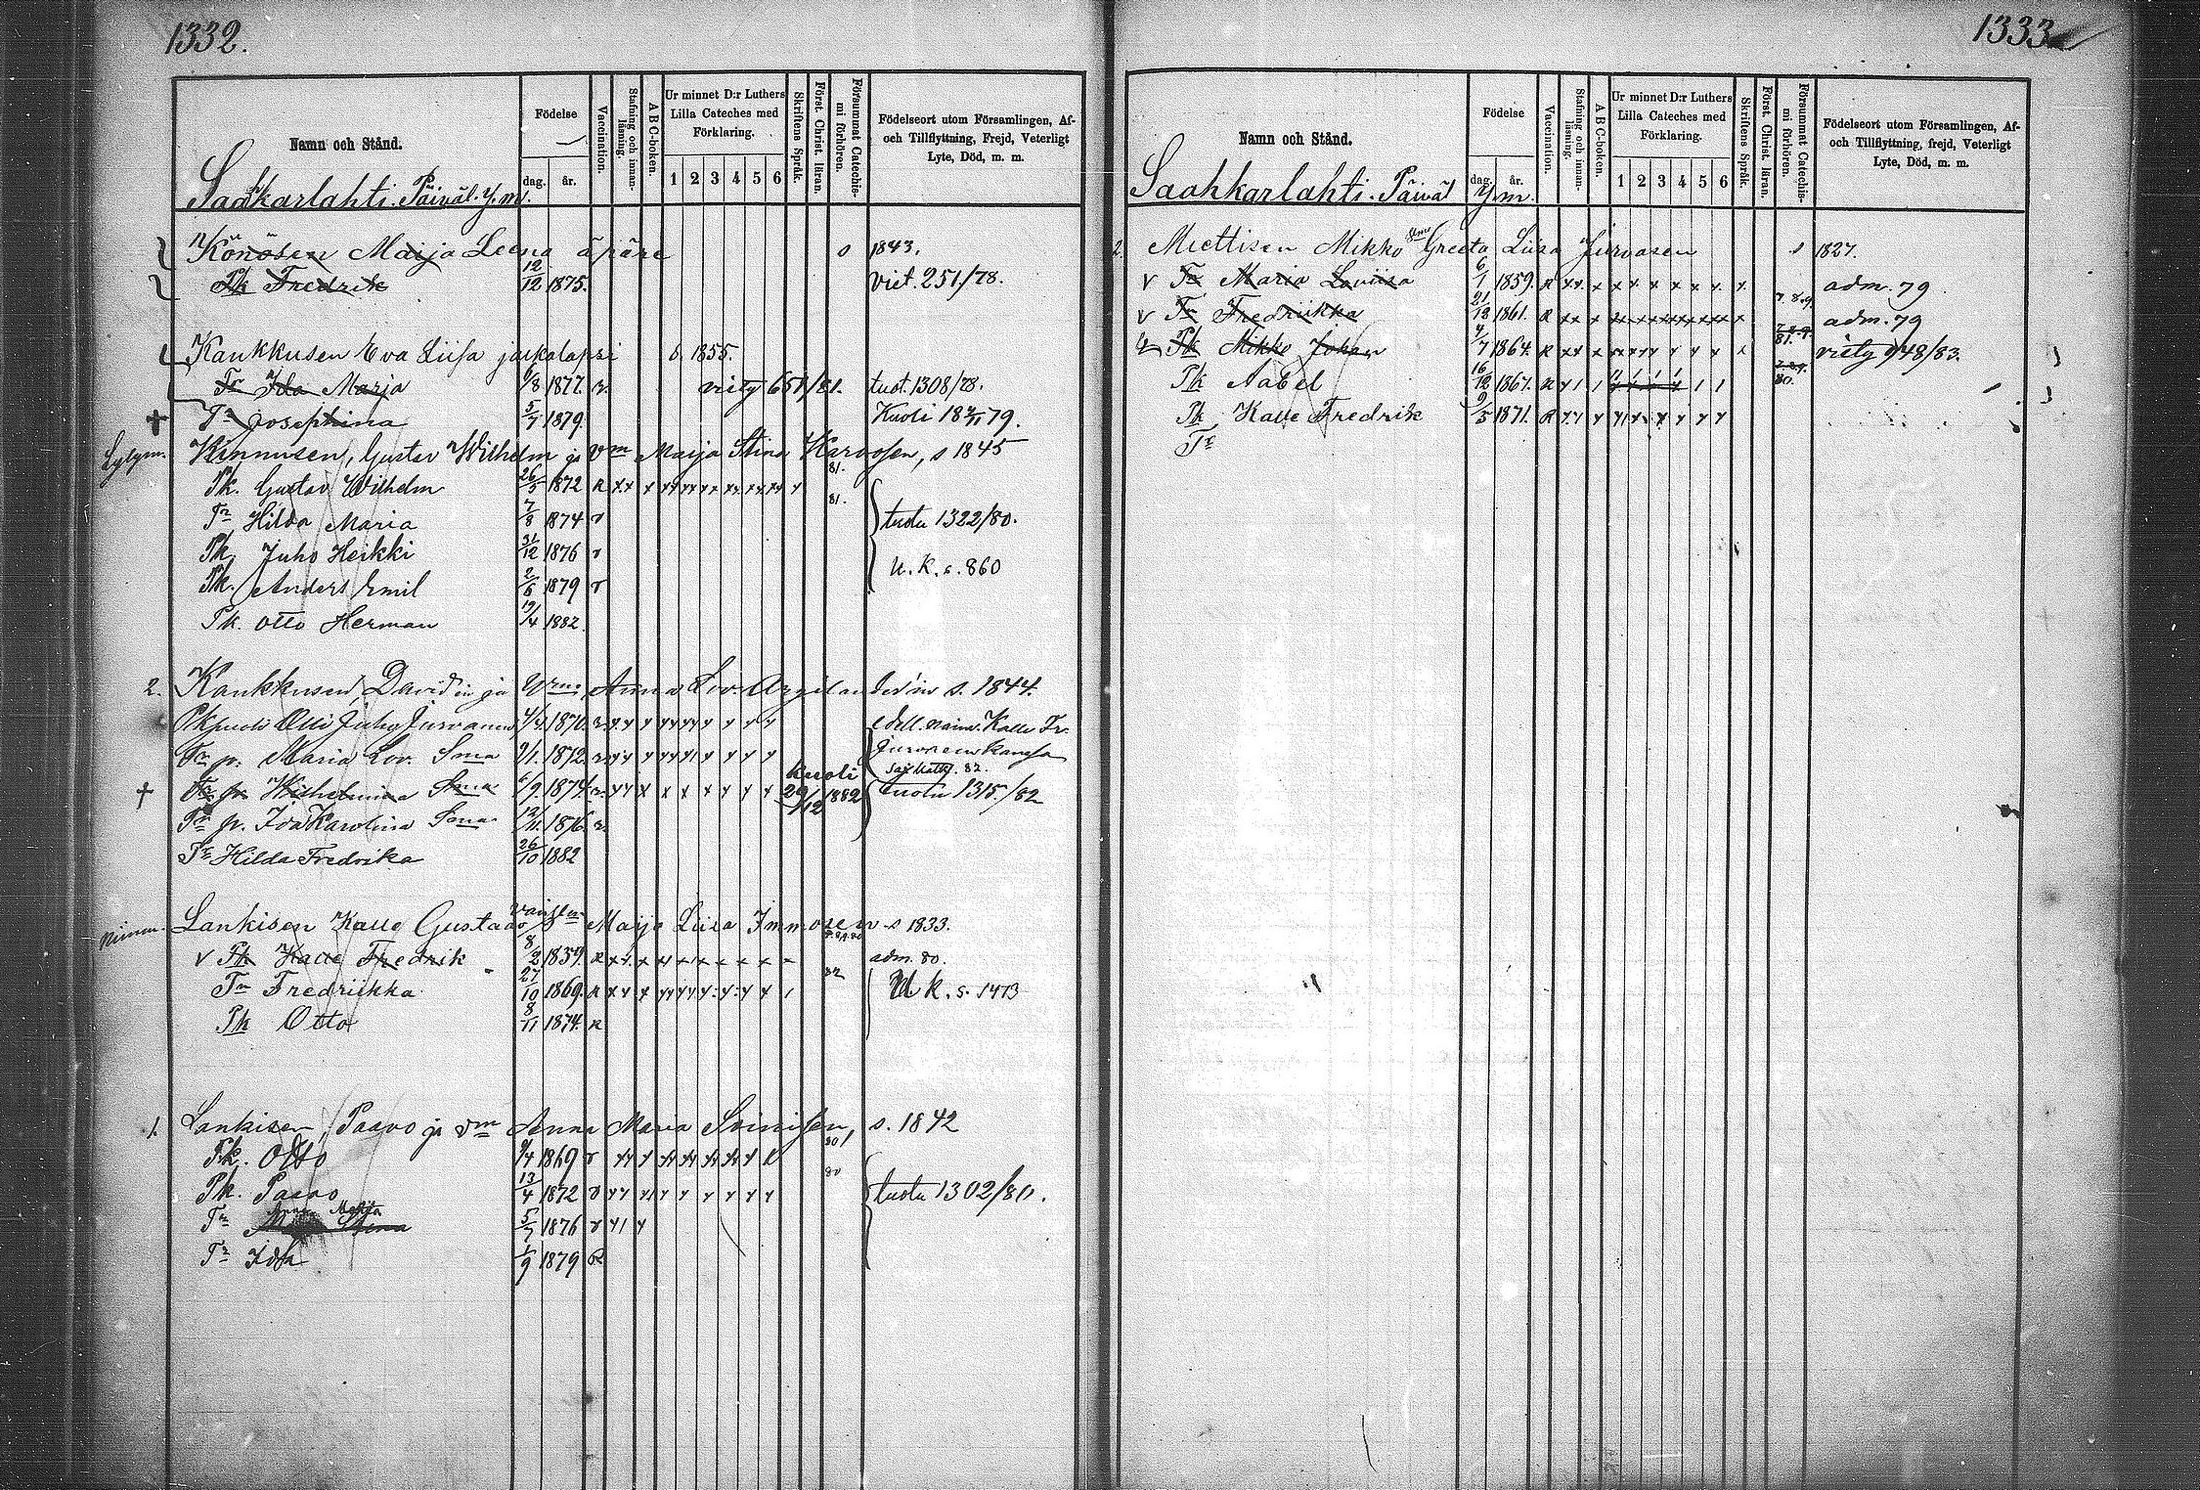 1332.
Namn och Stånd.
Födelse
dag.
år.
Vaccination.
Stafning och innanläsning.
ABC-boken.
Ur minnet D:r Luthers Lilla Cateches med Förklaring.
1 2 3 4 5 6
Skriftens Språk.
Först. Christ. läran.
Försummat Catechismi förhören.
Födelseort utom Församlingen, Af- och Tillflyttning, Frejd, Veterligt Lyte, Död, m. m.
Saahkarlahti. Päiväl. y. m.
Könösen Maija Leena äpäre 1843.
Pk Fredrik 12/12 1875. viet. 251/78.
Kaukkusen Eva Liisa jalkalapsi s. 1855.
Tr Ida Marja 6/8 1877. r. viety 651/81. tuot. 1308/78.
Tr Josephina 5/7 1879. Kuoli 79.
Kinnusen, Gustav Wilhelm ja Vm Maija Stina Karvosen, s 1845
Pk. Gustav Wilhelm 26/5 1872 81.
Tr Hilda Maria 7/8 1874 r 81. tuotu 1322/80.
Pk Juho Heikki 31/12 1876 r
Pk. Anders Emil 2/6 1879 r U. K. s. 860
Pk. Otto Herman 19/4 1882.
2. Kaukkusen, Davidin ja Vm. Anna Lov. s. 1844.
Pkpuoli Olli Juho Jurvanen 4/4. 1870. edell. naim. Kalle Fr.
Tr p. Maria Lov. Sma 9/1. 1872. Jurvosen kanssa
Tr p. Wilhelmina Sma 6/9. 1874. kuoli 29/12 1882 tuotu 1315./82
Tr p. Ida Karolina Sma 12/11. 1876 r.
Tr Hilda Fredrika 26/10 1882
Lankisen Kalle Gustaf Maija Liisa Immosen s 1833.
v Pk Kalle Fredrik 8/2 1859. adm. 80.
Tr Fredriikka 27/10 1869. 82 U K. s. 1473
Pk Otto 8/11 1874. R
1. Lankisen, Paavo ja Vm Anna Maria Soinisen, s. 1842
Pk. Otto 9/4 1869 r 80
Pk. Paavo 13/4 1872 80 tuotu 1302/80.
Tr Anna Marja Stina 5/7 1876
Tr Ida 1/9 1879 R
1333
Namn och Stånd.
Födelse
dag.
år.
Vaccination.
Stafning och innanläsning.
ABC-boken.
Ur minnet D:r Luthers Lilla Cateches med Förklaring.
1 2 3 4 5 6
Skriftens Språk.
Först. Christ. läran.
Försummat Catechismi förhören.
Födelseort utom Församlingen, Af- och Tillflyttning, frejd, Veterligt Lyte, Död, m. m.
Saahkarlahti. Päiväl y. m.
2. Miettisen Mikko Greeta Liisa Jurvasen 1827.
v Tr Maria Loviisa 6/1 1859. R adm. 79
v Tr Fredriikka 21/12 1861. R 7.8.9. adm. 79
Pk Mikko Johan 4/7 1864. R 81. viety 948/83.
Pk Nabel 16/12 1867. R 80.
Pk Kalle Fredrik 9/5 1871. R
Tr